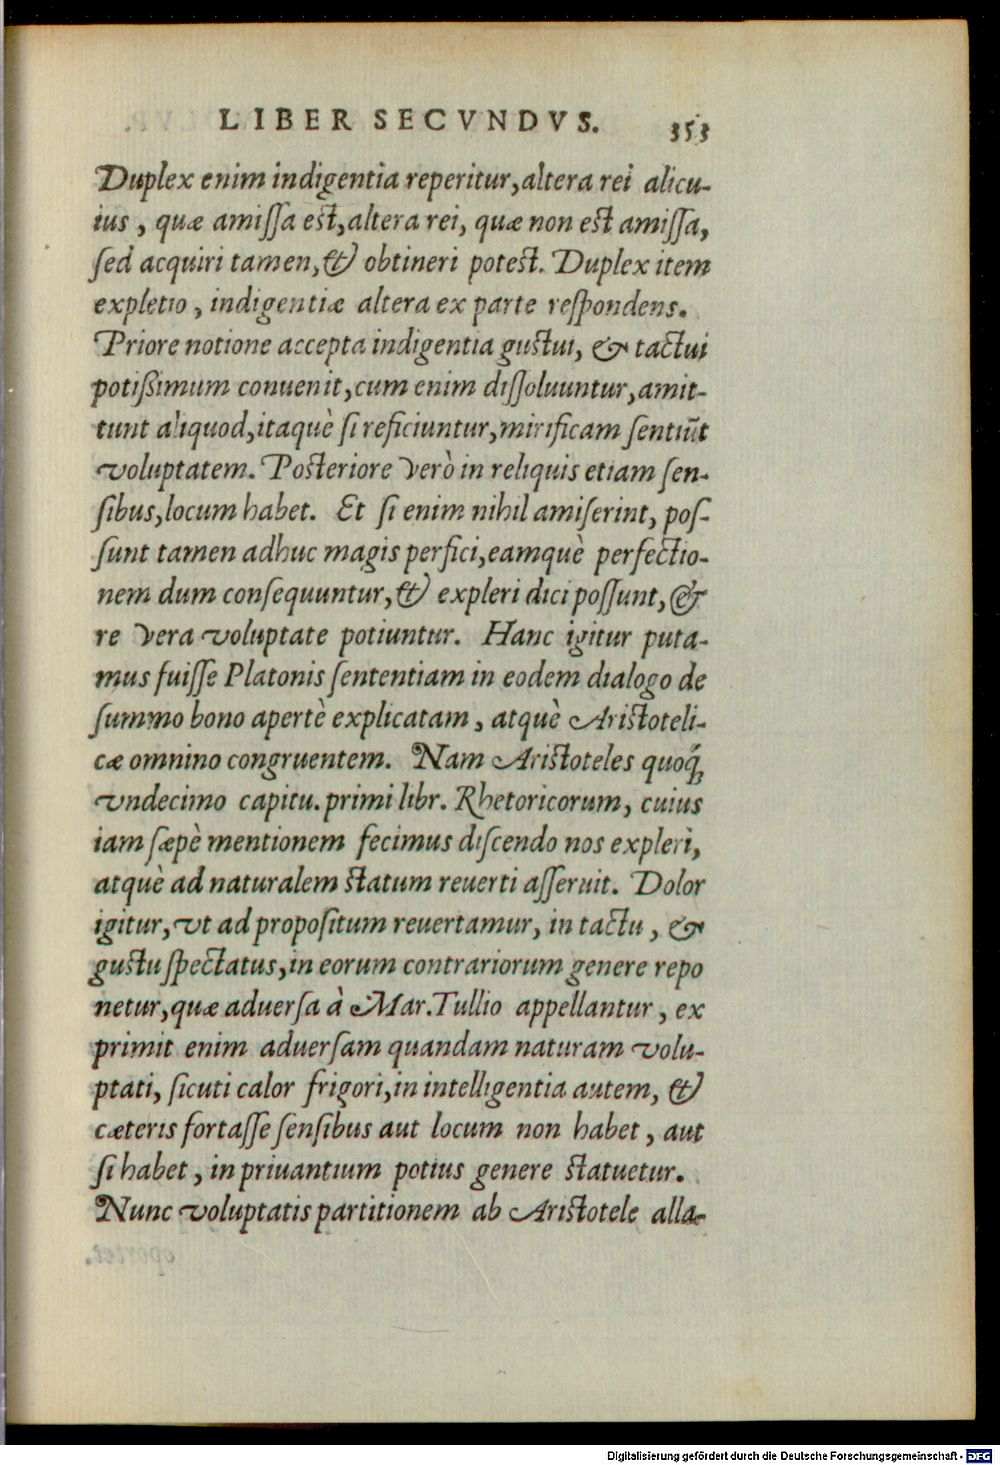 LIBER SECVNDVS. 353
Duplex enim indigentia reperitur, altera rei alicu-
ius, quæ amiſſa est, altera rei, quæ non est amiſſa,
ſed acquiri tamen, & obtineri potest. Duplex item
expletio, indigentiæ altera ex parte reſpondens.
Priore notione accepta indigentia gustui, & tactui
potißimum conuenit, cum enim diſſoluuntur, amit-
tunt aliquod, itaquè ſi reficiuntur, mirificam ſentiūt
voluptatem. Posteriore verò in reliquis etiam ſen-
ſibus, locum habet. Et ſi enim nihil amiſerint, poſ-
ſunt tamen adhuc magis perfici, eamquè perfectio-
nem dum conſequuntur, & expleri dici poſſunt, &
re vera voluptate potiuntur. Hanc igitur puta-
mus fuiſſe Platonis ſententiam in eodem dialogo de
ſummo bono apertè explicatam, atquè Aristoteli-
cæ omnino congruentem. Nam Aristoteles quoq́;
vndecimo capitu. primi libr. Rhetoricorum, cuius
iam ſæpè mentionem fecimus diſcendo nos expleri,
atquè ad naturalem statum reuerti aſſeruit. Dolor
igitur, vt ad propoſitum reuertamur, in tactu, &
gustu ſpectatus, in eorum contrariorum genere repo
netur, quæ aduerſa à Mar. Tullio appellantur, ex
primit enim aduerſam quandam naturam volu-
ptati, ſicuti calor frigori, in intelligentia autem, &
cæteris fortaſſe ſenſibus aut locum non habet, aut
ſi habet, in priuantium potius genere statuetur.
Nunc voluptatis partitionem ab Aristotele alla-
Digitalisierung gefördert durch die Deutsche Forschungsgemeinschaft - DFG